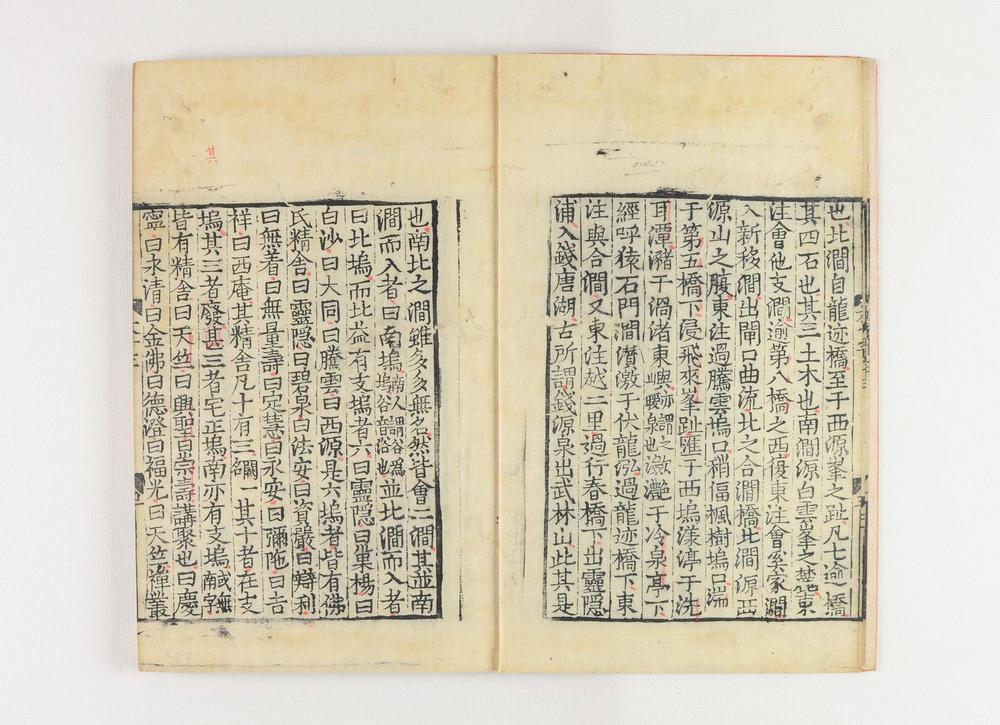 也北澗自龍迹橋至于西源峯之趾凡七逾橋
其四石也其三土木也南澗源白雲峯之莖東
注會他支澗逾第八橋之西復東注會奚家澗
入新移澗出閘口曲流北之合澗橋北澗源西
源山之腹東注過騰雲塢口稍偪楓樹塢口湍
于第五橋下浸飛來峯趾匯于西塢漾渟于洗
耳潭瀦于渦渚東嶼亦謂之暖泉也潋灔于冷泉亭下
經呼猿石門澗潛激于伏龍泓過龍迹橋下東
注與合澗又東注越二里過行春橋下出靈隱
浦入錢唐湖古所謂錢源泉出武林山此其是
也南北之澗雖多多無名然皆會二澗其並南
澗而入者曰南塢南人謂谷爲塢塢谷音俗也並北澗而入者
曰北塢而北益有支塢者六曰靈隱曰巢楊曰
白沙曰大同曰騰雲曰西源是六塢者皆有佛
氏精舍曰靈隱曰碧泉曰法安曰資嚴曰辯利
曰無著曰無量壽曰定慧曰永安曰彌陁曰吉
祥曰西庵其精舍凡十有三名闕一其十者在支
塢其三者廢其三者宅正塢南亦有支塢南字或無
皆有精舍曰天竺曰興聖曰崇壽講聚也曰慶
寧曰永清曰金佛曰德澄曰福光曰天竺禪叢
其